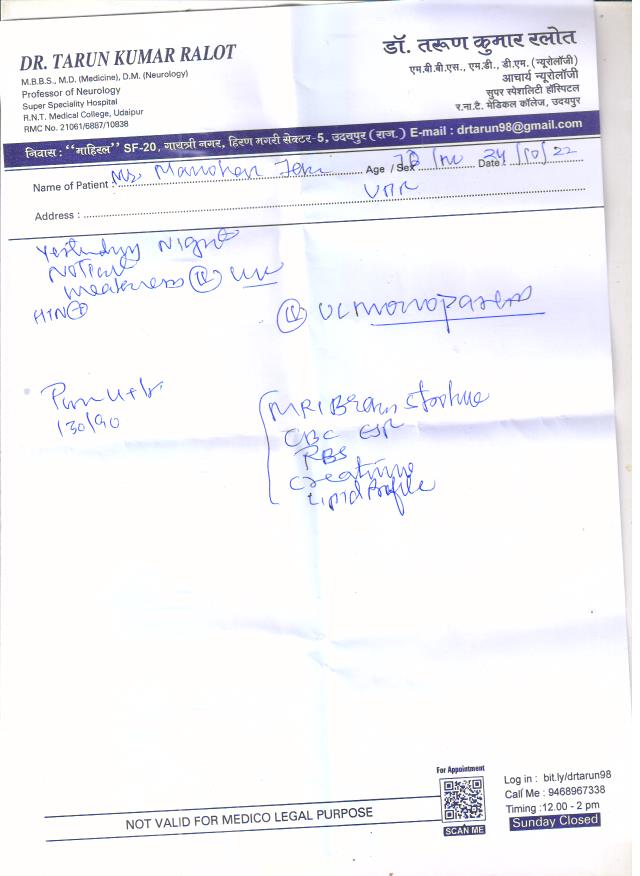 DR. TARUN KUMAR RALOT
M.B.B.S., M.D. (Medicine), D.M. (Neurology)
Professor of Neurology
Super Speciality Hospital
R.N.T. Medical College, Udaipur
RMC No. 21061/6887/10838
डॉ. तरूण कुमार रलोत
एम.बी.बी.एस., एम.डी., डी.एम. (न्यूरोलॉजी)
आचार्य न्यूरोलॉजी
सुपर स्पेशलिटी हॉस्पिटल
र.ना.टै. मेडिकल कॉलेज, उदयपुर
निवास : "माहिरल" SF-20, गायत्री नगर, हिरण मगरी सेक्टर-5, उदयपुर (राज.) E-mail : drtarun98@gmail.com
Name of Patient : Manohar Age / Sex 78 / m Date : 24/10/22
Address :
Yesterday Night
Notical
weakness
HTN
monoparesis
130/90
MRI Brain Stroke
CBC ESR
RBS
Creatinine
Lipid Profile
For Appointment
SCAN ME
Log in : bit.ly/drtarun98
Call Me : 9468967338
Timing :12.00 - 2 pm
Sunday Closed
NOT VALID FOR MEDICO LEGAL PURPOSE